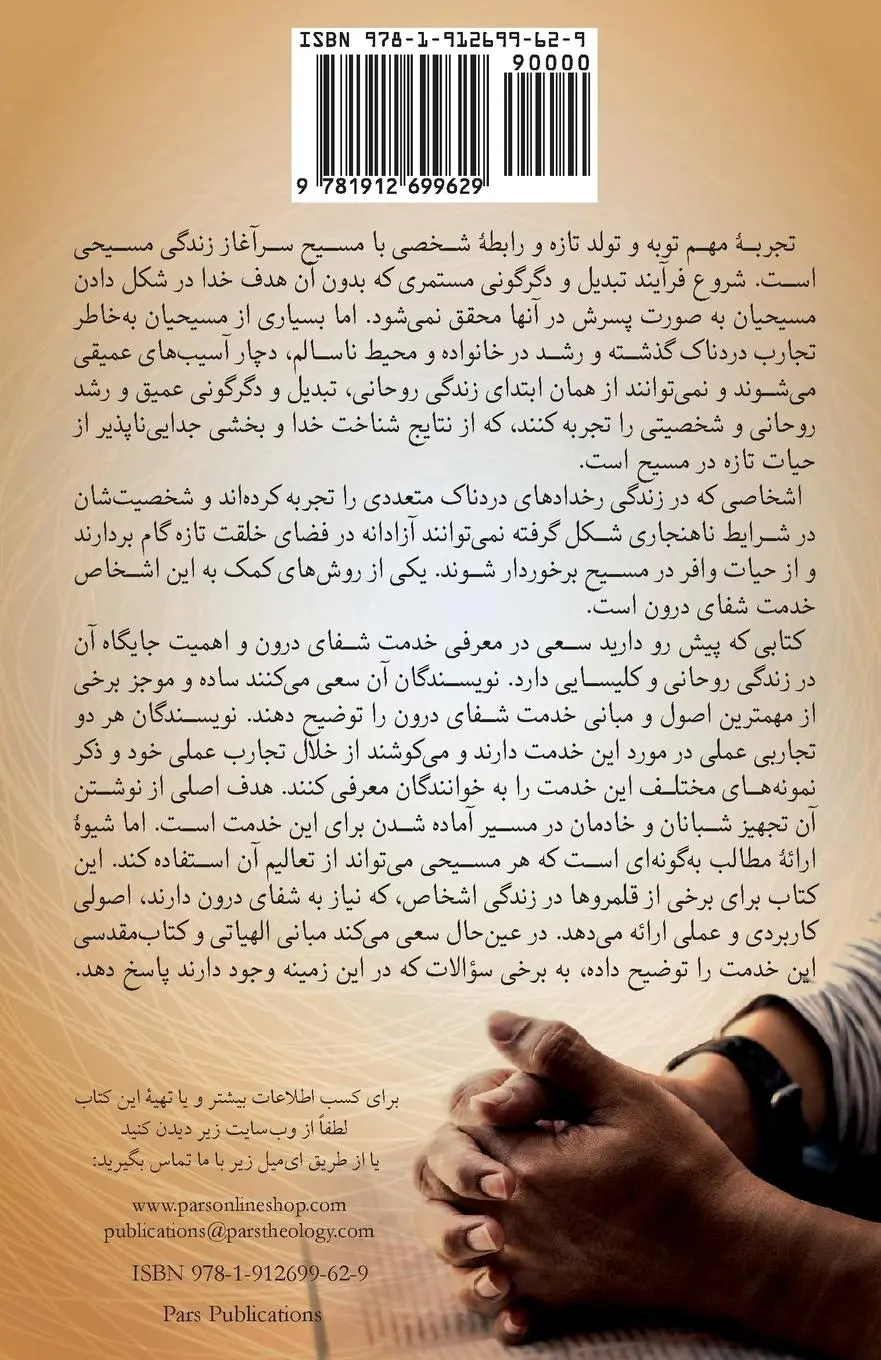 ISBN 978-1-912699-62-9
90000
9 781912 699629
تجربهٔ مهم توبه و تولد تازه و رابطهٔ شخصی با مسیح سرآغاز زندگی مسیحی
است. شروع فرآیند تبدیل و دگرگونی مستمری که بدون آن هدف خدا در شکل دادن
مسیحیان به صورت پسرش در آنها محقق نمی‌شود. اما بسیاری از مسیحیان به‌خاطر
تجارب دردناک گذشته و رشد در خانواده و محیط ناسالم، دچار آسیب‌های عمیقی
می‌شوند و نمی‌توانند از همان ابتدای زندگی روحانی، تبدیل و دگرگونی عمیق و رشد
روحانی و شخصیتی را تجربه کنند، که از نتایج شناخت خدا و بخشی جدایی‌ناپذیر از
حیات تازه در مسیح است.
اشخاصی که در زندگی رخدادهای دردناک متعددی را تجربه کرده‌اند و شخصیت‌شان
در شرایط ناهنجاری شکل گرفته نمی‌توانند آزادانه در فضای خلقت تازه گام بردارند
و از حیات وافر در مسیح برخوردار شوند. یکی از روش‌های کمک به این اشخاص
خدمت شفای درون است.
کتابی که پیش رو دارید سعی در معرفی خدمت شفای درون و اهمیت جایگاه آن
در زندگی روحانی و کلیسایی دارد. نویسندگان آن سعی می‌کنند ساده و موجز برخی
از مهمترین اصول و مبانی خدمت شفای درون را توضیح دهند. نویسندگان هر دو
تجاربی عملی در مورد این خدمت دارند و می‌کوشند از خلال تجارب عملی خود و ذکر
نمونه‌های مختلف این خدمت را به خوانندگان معرفی کنند. هدف اصلی از نوشتن
آن تجهیز شبانان و خادمان در مسیر آماده شدن برای این خدمت است. اما شیوهٔ
ارائهٔ مطالب به‌گونه‌ای است که هر مسیحی می‌تواند از تعالیم آن استفاده کند. این
کتاب برای برخی از قلمروها در زندگی اشخاص، که نیاز به شفای درون دارند، اصولی
کاربردی و عملی ارائه می‌دهد. در عین‌حال سعی می‌کند مبانی الهیاتی و کتاب‌مقدسی
این خدمت را توضیح داده، به برخی سؤالات که در این زمینه وجود دارند پاسخ دهد.
برای کسب اطلاعات بیشتر و یا تهیهٔ این کتاب
لطفاً از وب‌سایت زیر دیدن کنید
یا از طریق ای‌میل زیر با ما تماس بگیرید:
www.parsonlineshop.com
publications@parstheology.com
ISBN 978-1-912699-62-9
Pars Publications